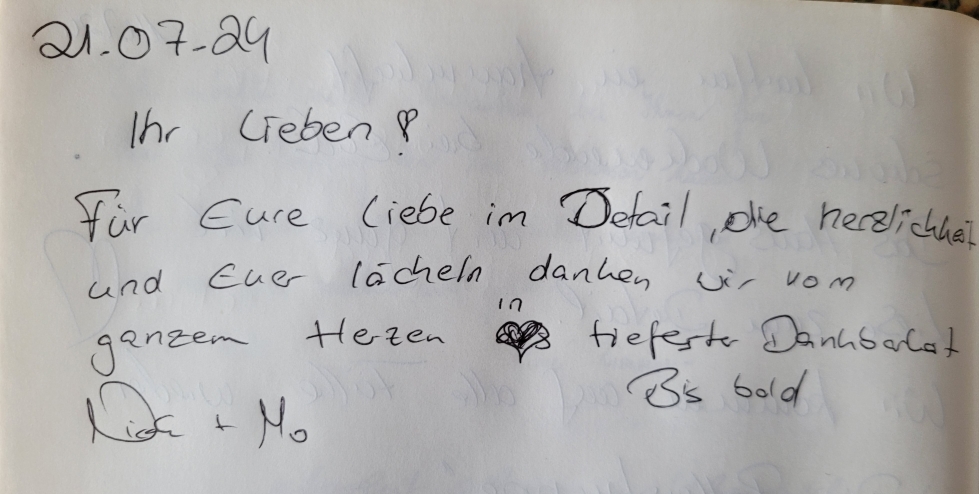 21.07.24
Ihr Lieben!
Für Eure Liebe im Detail, die herzlichheit
und Euer lächeln danken wir vom
in
ganzem Herzen tiefester Dankbarkat
Bis bald
+ Mo